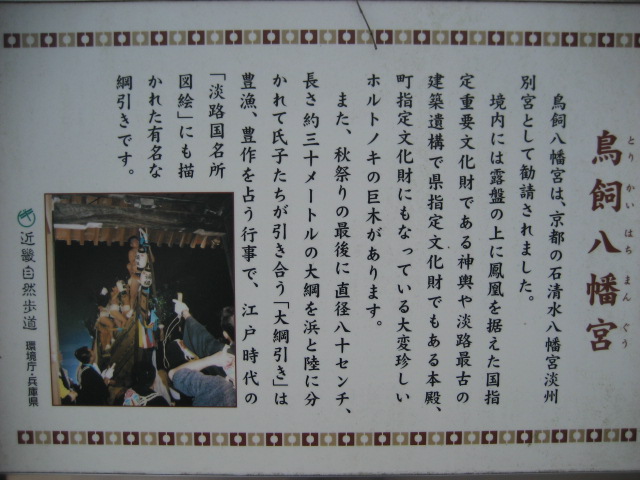 鳥飼八幡宮
とりかいはちまんぐう
鳥飼八幡宮は、京都の石清水八幡宮淡州
別宮として勧請されました。
境内には露盤の上に鳳凰を据えた国指
定重要文化財である神輿や淡路最古の
建築遺構で県指定文化財でもある本殿、
町指定文化財にもなっている大変珍しい
ホルトノキの巨木があります。
また、秋祭りの最後に直径八十センチ、
長さ約三十メートルの大綱を浜と陸に分
かれて氏子たちが引き合う「大綱引き」は
豊漁、豊作を占う行事で、江戸時代の
「淡路国名所
図絵」にも描
かれた有名な
綱引きです。
近畿自然歩道
環境庁・兵庫県